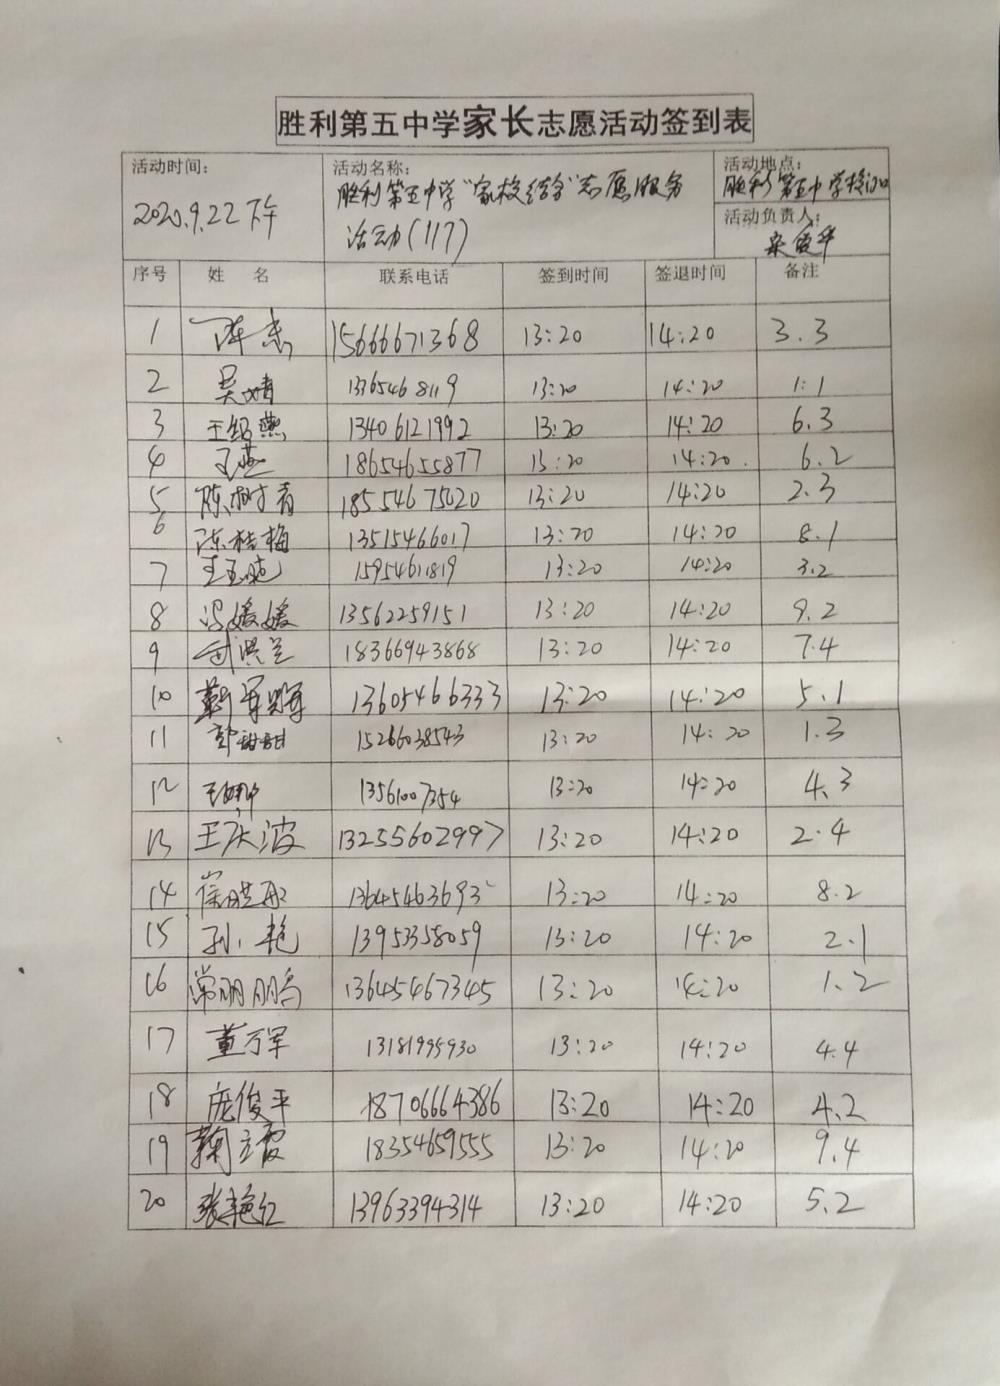 胜利第五中学家长志愿活动签到表
活动时间: 活动名称: 活动地点:
2020.9.22下午 胜利第五中学"家校结合"志愿服务 胜利第五中学校门口
活动(117) 活动负责人:
序号 姓 名 联系电话 签到时间 签退时间 备注
1 陈杰 15666671368 13:20 14:20 3.3
2 吴婧 13765468119 13:20 14:20 1.1
3 王绍燕 13406121992 13:20 14:20 6.3
4 王燕 18654655877 13:20 14:20 6.2
5 陈树青 18554675020 13:20 14:20 2.3
6 陈桂梅 13515466017 13:20 14:20 8.1
7 15954611819 13:20 14:20 3.2
8 冯媛媛 13562259151 13:20 14:20 9.2
9 18366943868 13:20 14:20 7.4
10 13605466333 13:20 14:20 5.1
11 郭甜甜 15266038543 13:20 14:20 1.3
12 王娜 13561007354 13:20 14:20 4.3
13 王庆波 13255602997 13:20 14:20 2.4
14 13645463693 13:20 14:20 8.2
15 孙艳 13953358059 13:20 14:20 2.1
16 常明鹏 13645467345 13:20 14:20 1.2
17 董万军 13181995930 13:20 14:20 4.4
18 庞俊平 18706664386 13:20 14:20 4.2
19 鞠立霞 18354659555 13:20 14:20 9.4
20 张艳红 13963394314 13:20 14:20 5.2